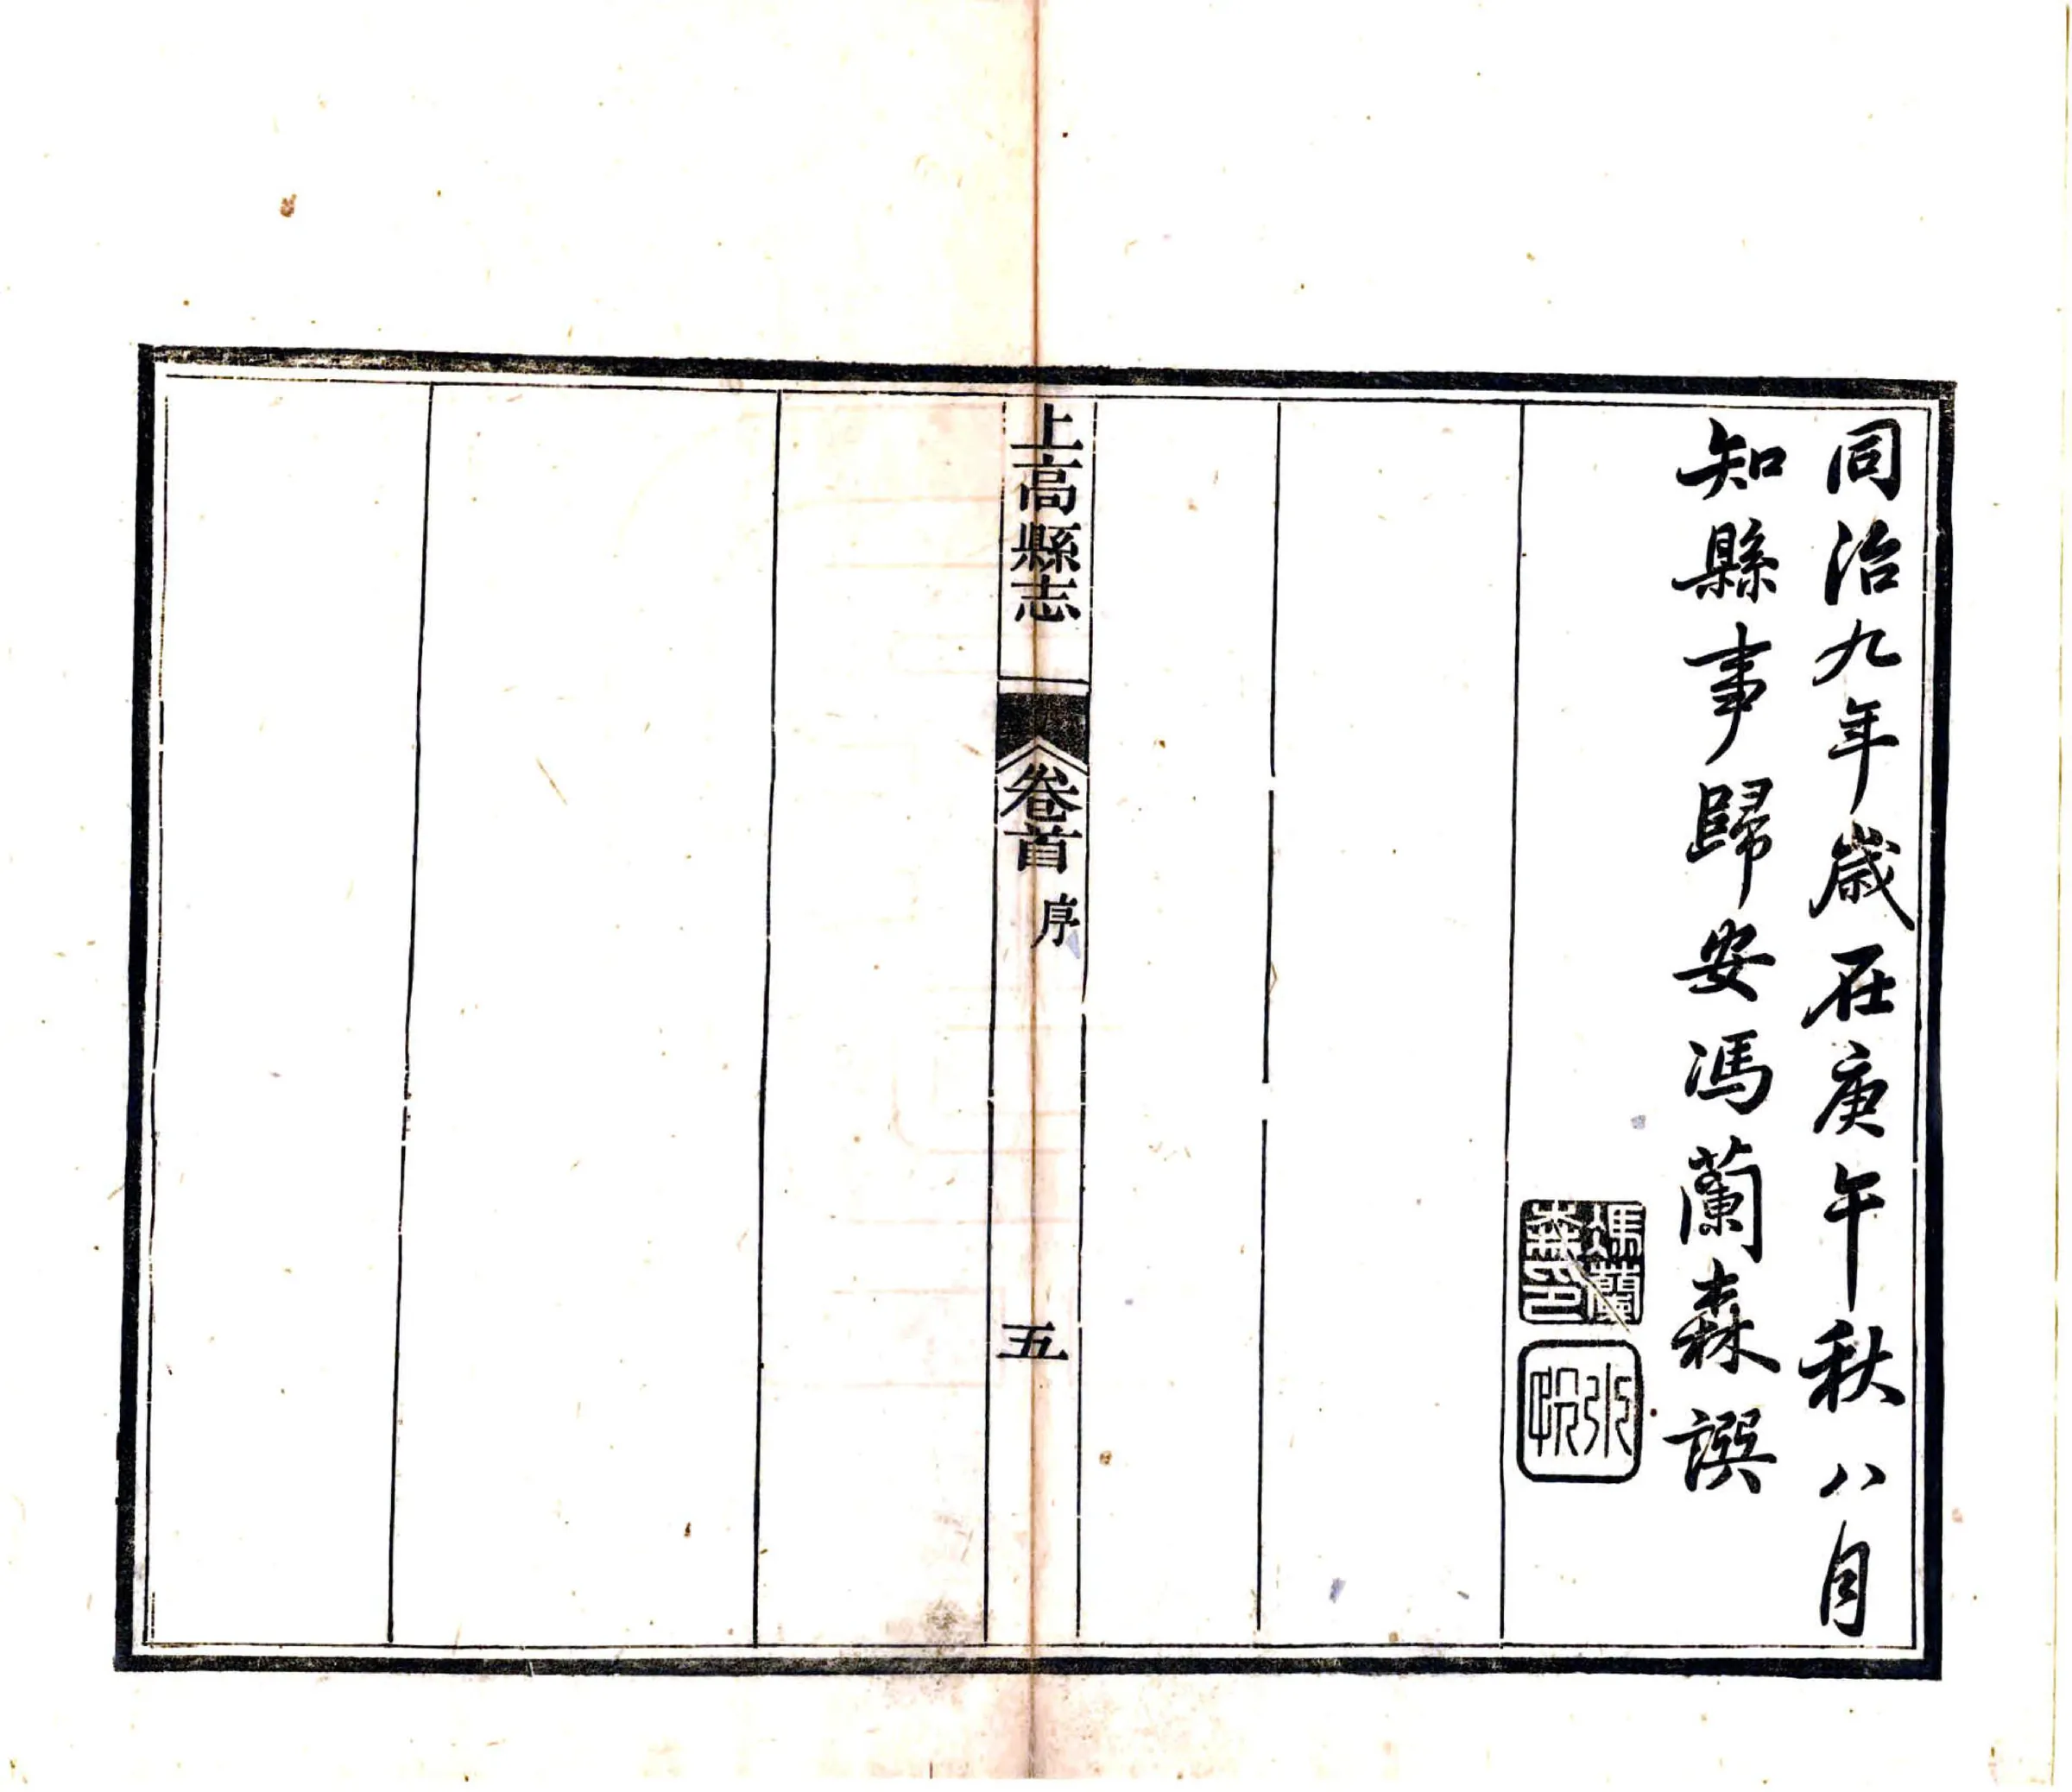 同治九年歲在庚午秋八月
知縣事歸安馮蘭森譔
馮蘭
森印
上高縣志
卷首
序
五